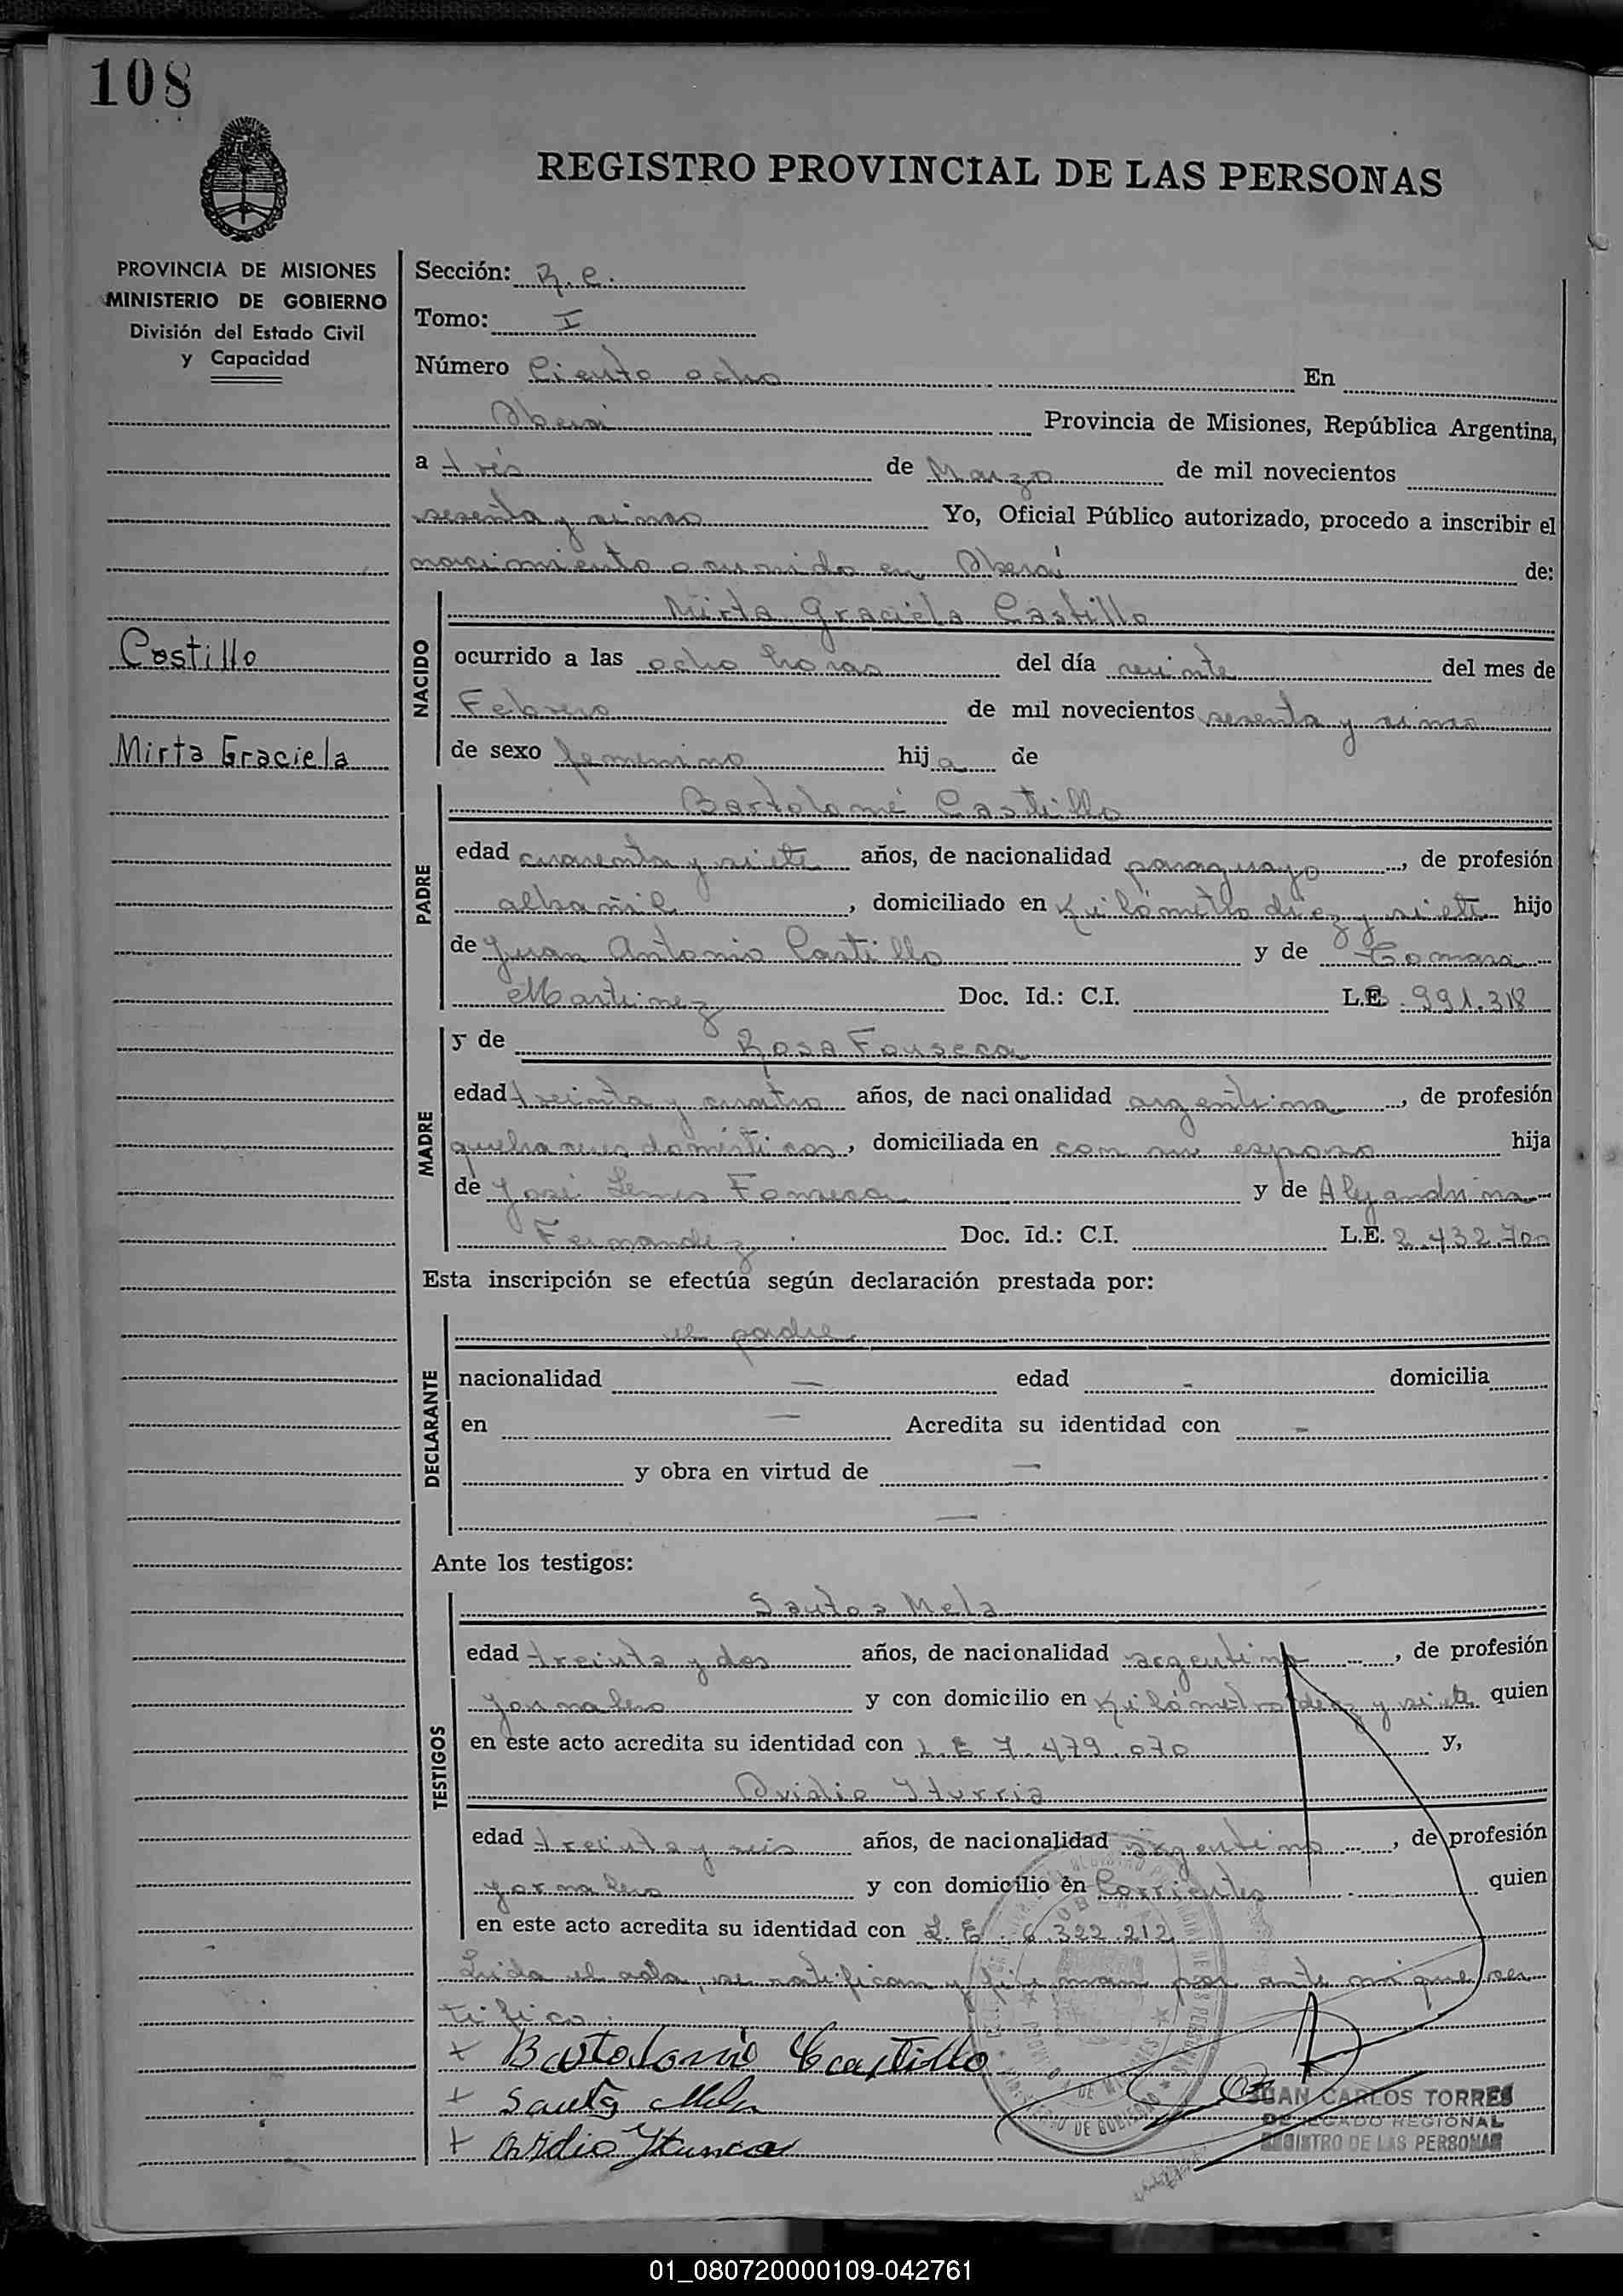 108
REGISTRO PROVINCIAL DE LAS PERSONAS
PROVINCIA DE MISIONES
MINISTERIO DE GOBIERNO
División del Estado Civil
y Capacidad
Castillo
Mirta Graciela
Sección: R.C.
Tomo: I
Número Ciento ocho En
Oberá Provincia de Misiones, República Argentina,
a tres de Marzo de mil novecientos
sesenta y cinco Yo, Oficial Público autorizado, procedo a inscribir el
nacimiento ocurrido en Oberá de:
NACIDO
Mirta Graciela Castillo
ocurrido a las ocho horas del día veinte del mes de
Febrero de mil novecientos sesenta y cinco
de sexo femenino hija de
PADRE
Bartolomé Castillo
edad cuarenta y siete años, de nacionalidad paraguayo, de profesión
albañil, domiciliado en Kilómetro diez y siete hijo
de Juan Antonio Castillo y de Tomasa
Martinez Doc. Id.: C.I. L.E. 991.318
MADRE
y de Rosa Fonseca
edad treinta y cuatro años, de nacionalidad argentina, de profesión
quehaceres domésticos, domiciliada en con su esposo hija
de José Lemes Fonseca y de Alejandrina
Fernandez Doc. Id.: C.I. L.E. 2.432.700
Esta inscripción se efectúa según declaración prestada por:
DECLARANTE
el padre
nacionalidad — edad - domicilia
en — Acredita su identidad con -
y obra en virtud de —
—
Ante los testigos:
TESTIGOS
Santos Mela
edad treinta y dos años, de nacionalidad argentino, de profesión
Jornalero y con domicilio en Kilómetro diez y siete quien
en este acto acredita su identidad con L.E 7.479.070 y,
Ovidio Iturria
edad treinta y seis años, de nacionalidad argentino, de profesión
jornalero y con domicilio en Corrientes quien
en este acto acredita su identidad con L.E. 6.322.212
Leida el acta, se ratifican y firman por ante mi que cer
tifico.
+ Bartolomé Castillo
+ Santos Mela
+ Ovidio Iturria
JUAN CARLOS TORRES
DELEGADO REGIONAL
REGISTRO DE LAS PERSONAS
01_080720000109-042761